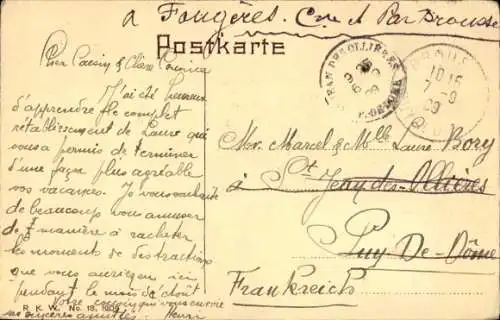 à Fougères. Cne de Par Brousse
Postkarte
Cher Cousin & Chère Cousine
J'ai été heureux
d'apprendre le complet
rétablissement de Laure qui
vous a permis de terminer
d'une façon plus agréable
vos vacances. Je vous souhaite
de beaucoup vous amuser
de manière à racheter
les moments de distractions
que vous auriez eu ici
pendant le mois d'août
Votre cousin qui vous envoie
ses sincères amitiés. Henri
R. K. W. No. 18, 1909
ST JEAN DES OLLIERES
PUY-DE-DOME
10 15
7 -9
09
Mr. Marcel & Mlle Laure Bory
à St Jean-des-Ollières
Puy-De-Dôme
Frankreich